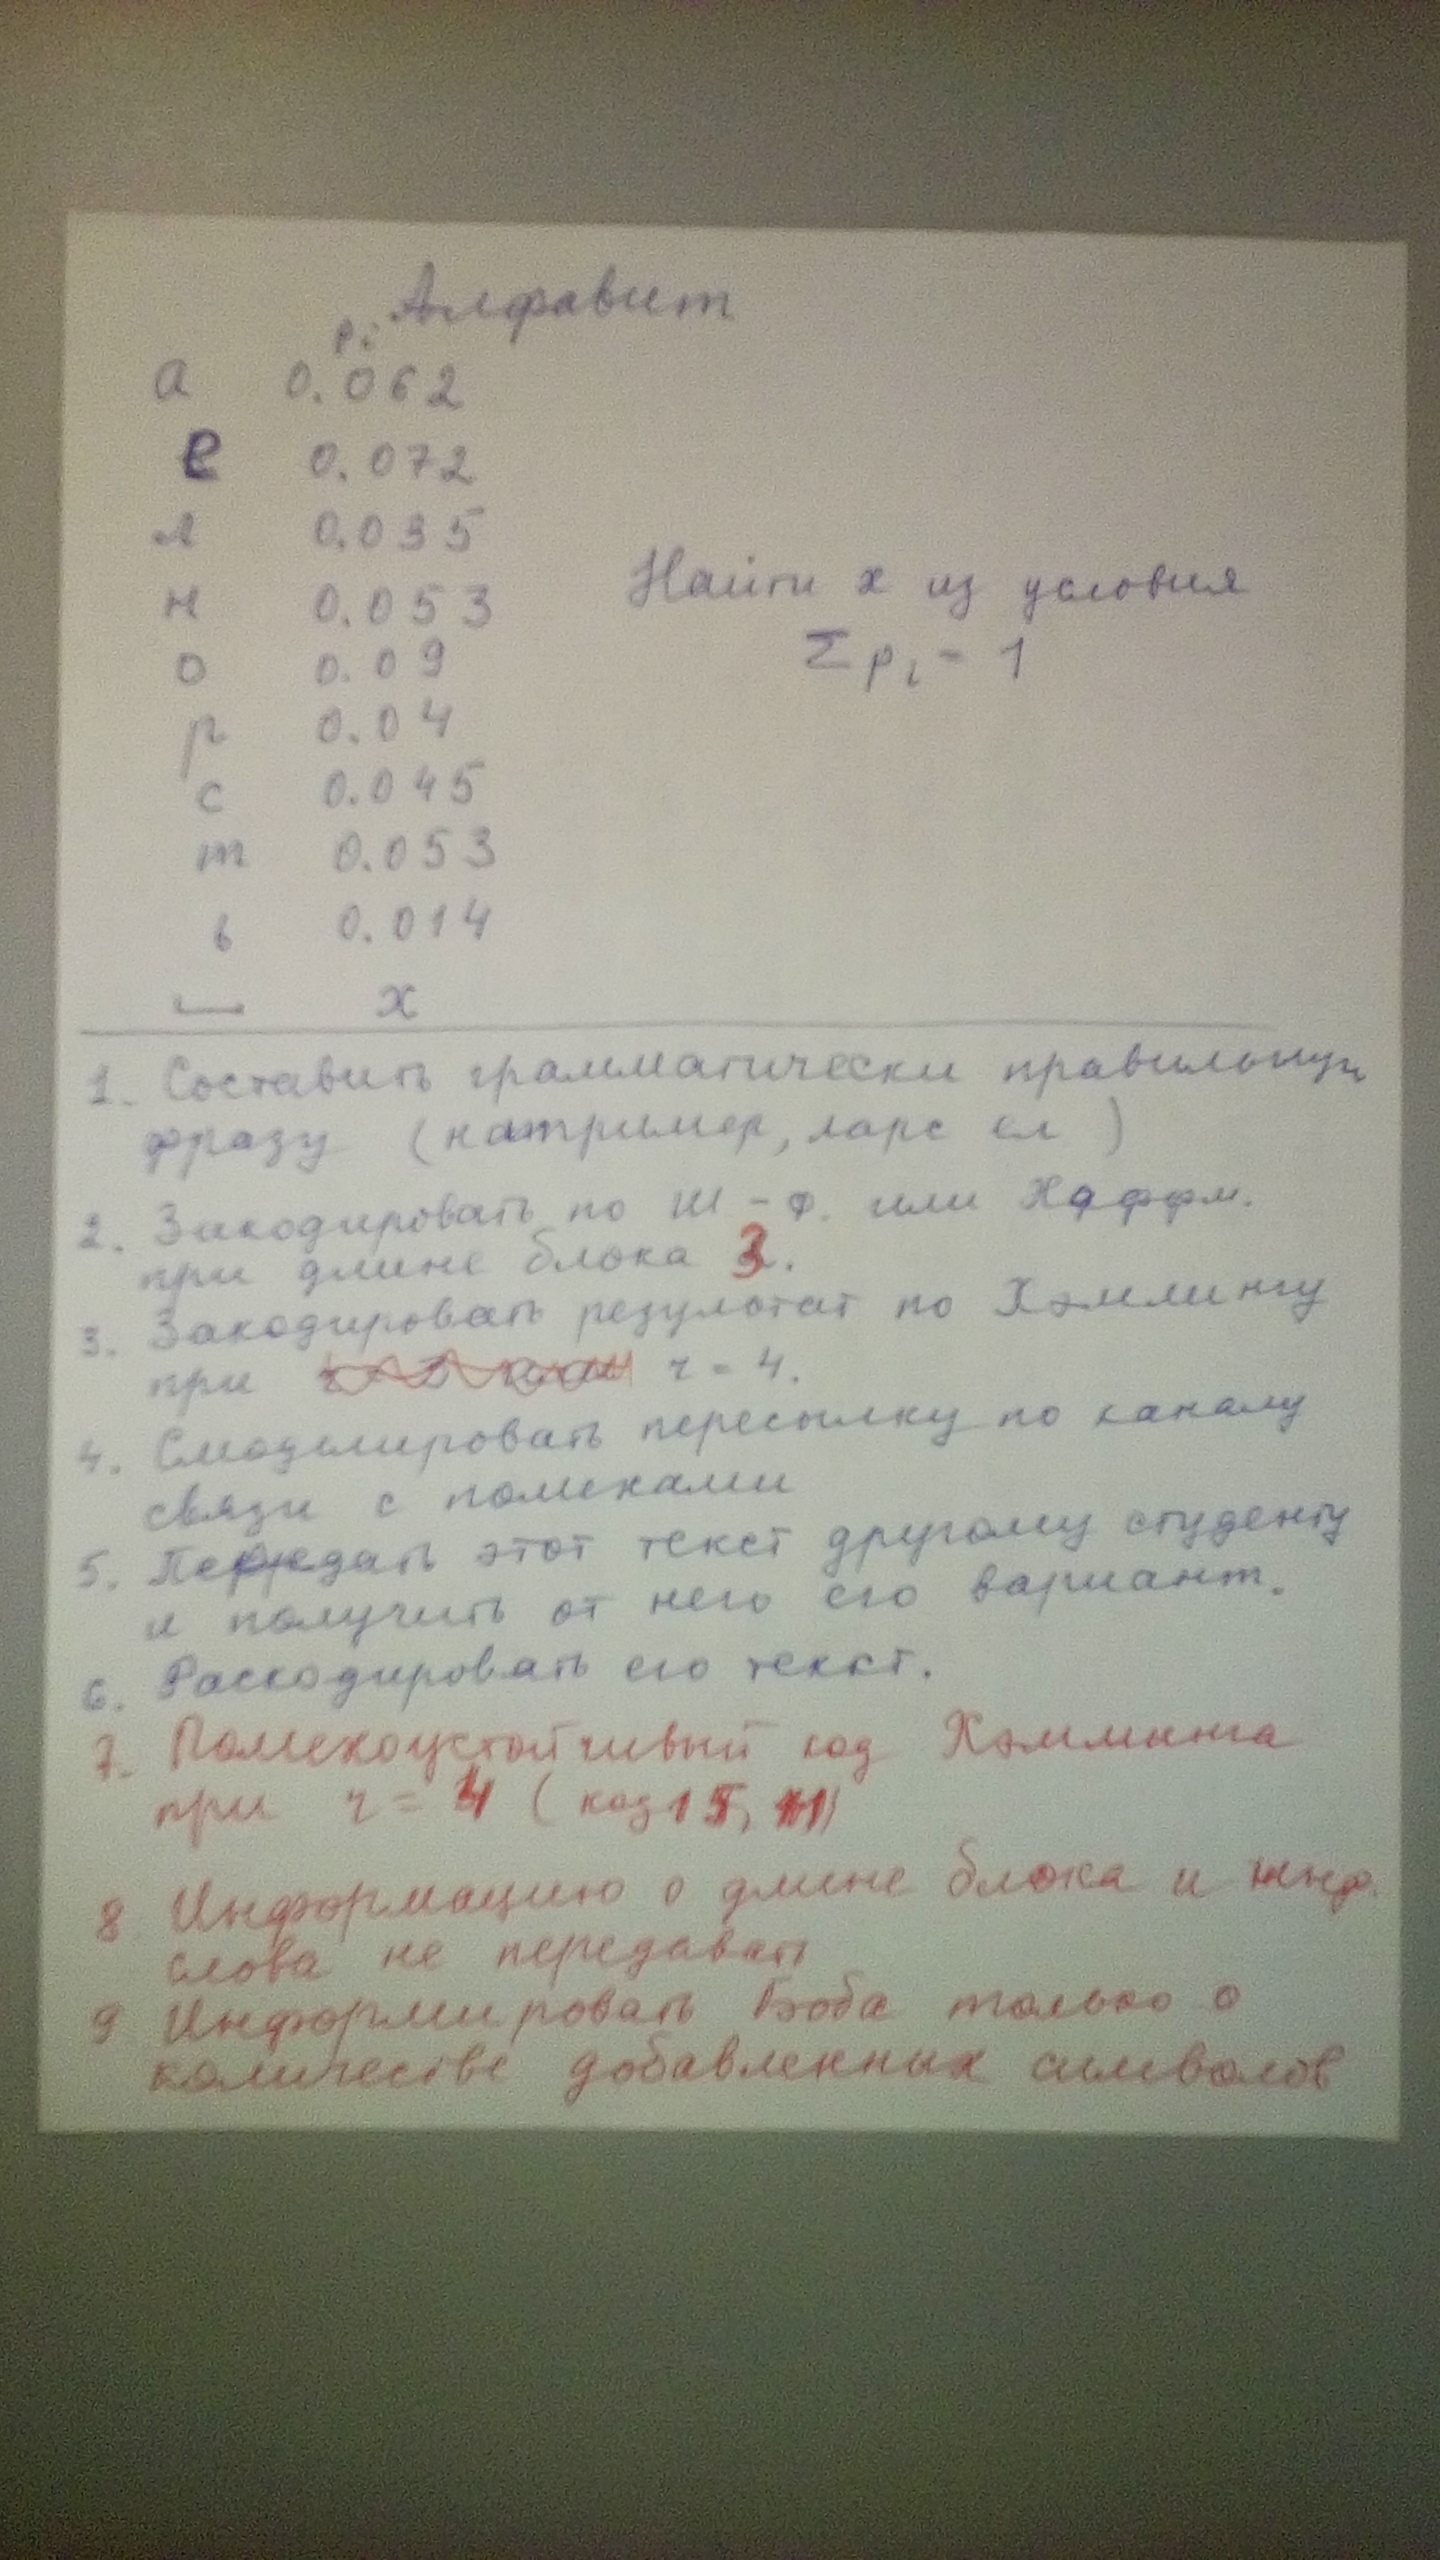 Алфавит
pi
а 0.062
е 0.072
л 0.035
н 0.053
о 0.09
р 0.04
с 0.045
т 0.053
ь 0.014
⎵ x
Найти x из условия
Σ pi = 1
1. Составить грамматически правильную
фразу (например, ларс ел)
2. Закодировать по Ш-Ф. или Хаффм.
при длине блока 3.
3. Закодировать результат по Хэммингу
при r = 4.
4. Смоделировать пересылку по каналу
связи с помехами
5. Передать этот текст другому студенту
и получить от него его вариант.
6. Раскодировать его текст.
7. Помехоустойчивый код Хэмминга
при r = 4 (код 15, 11)
8 Информацию о длине блока и инф.
слова не передавать
9 Информировать Боба только о
количестве добавленных символов